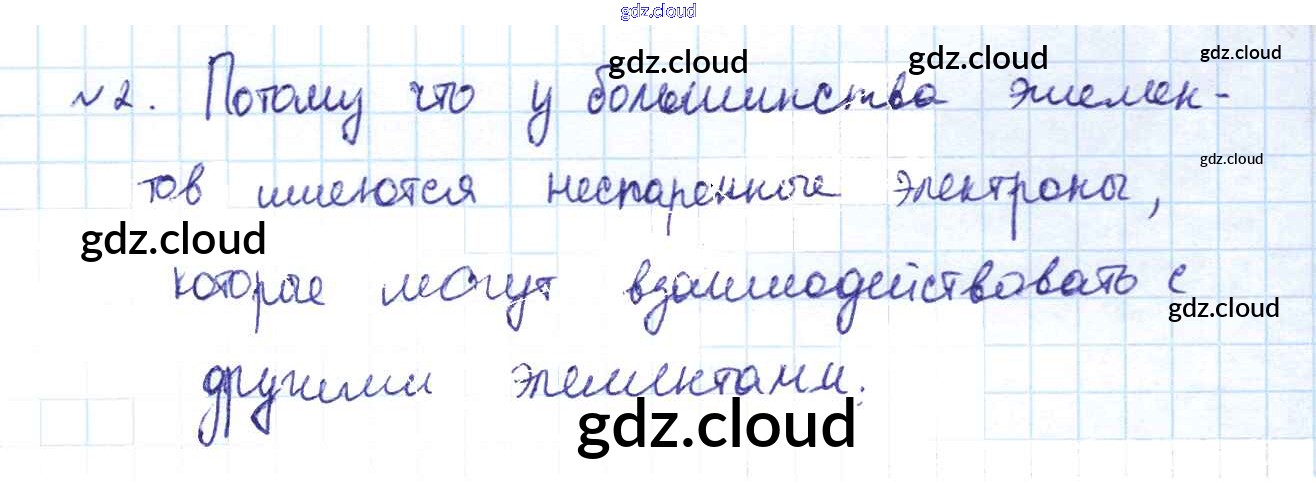 gdz.cloud
gdz.cloud gdz.cloud gdz.cloud
№2. Потому что у большинства элемен-
gdz.cloud
тов имеются неспаренные электроны,
gdz.cloud
которые могут взаимодействовать с
gdz.cloud
другими элементами.
gdz.cloud